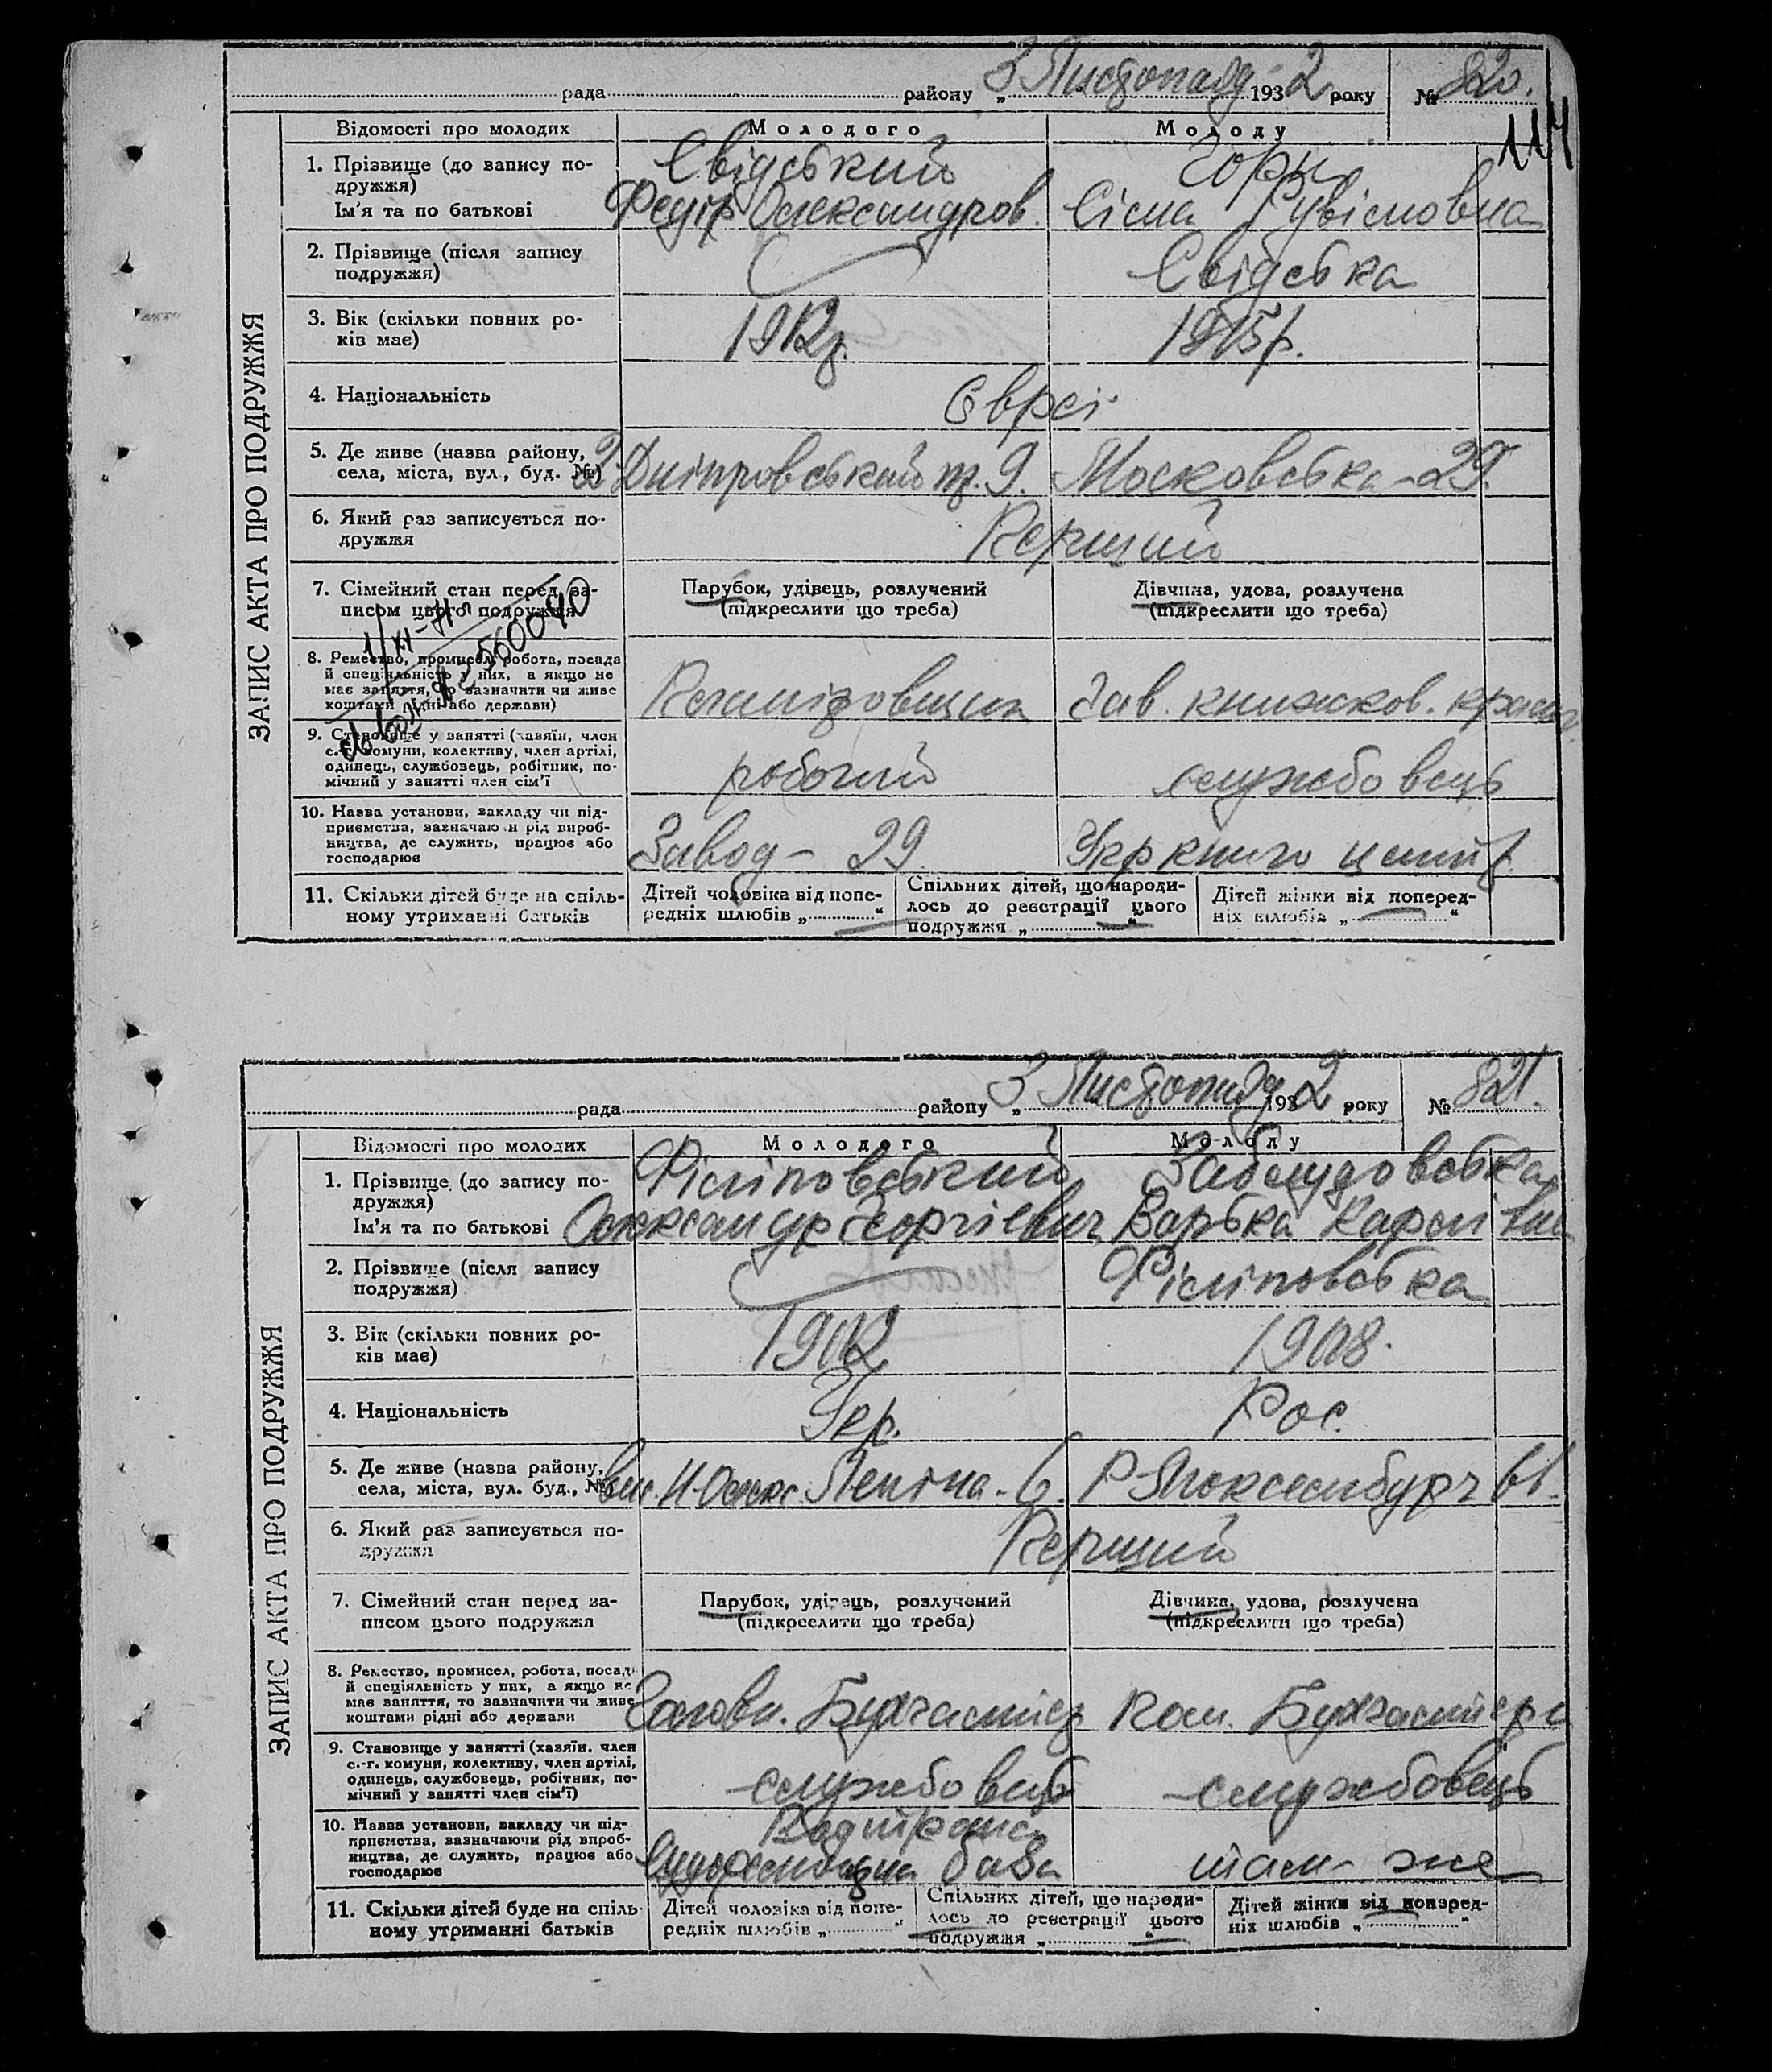 рада района „ 3 Листопаду 1932 року № 820.
114
ЗАПИС АКТА ПРО ПОДРУЖЖЯ
Відомості про молодих Молодого Молоду
1. Прізвище (до запису по-
дружжя)
Ім'я та по батькові
Свідський
Федір Олександров.
Горн
Рувімовна
2. Прізвище (після запису
подружжя)
Свідська
3. Вік (скільки повних ро-
ків має)
1912р.
1915р.
4. Національність
Євреї
5. Де живе (назва району,
села, міста, вул., буд. №)
Дніпровський 9.
Московська-29.
6. Який раз записується по-
дружжя
Перший
7. Сімейний стан перед за-
писом цього подружжя
Парубок, удівець, розлучений
(підкреслити що треба)
Дівчина, удова, розлучена
(підкреслити що треба)
8. Ремество, промисел, робота, посада
й спеціяльність у них, а якщо не
має заняття, то зазначити чи живе
коштами рідні або держави)
Зав. книжков.
9. Становище у занятті (хазяїн, член
с.-г. комуни, колективу, член артілі,
одинець, службовець, робітник, по-
мічний у занятті член сім'ї
робочий
службовець
10. Назва установи, закладу чи під-
приємства, зазначаючи рід вироб-
ництва, де служить, працює або
господарює
Завод- 29
Укркнигоцентр.
11. Скільки дітей буде на спіль-
ному утриманні батьків
Дітей чоловіка від попе-
редніх шлюбів „ “
Спільних дітей, що народи-
лось до реєстрації цього
подружжя „ “
Дітей жінки від поперед-
ніх шлюбів „ “
рада району „ 3 Листопаду 1932 року № 821.
ЗАПИС АКТА ПРО ПОДРУЖЖЯ
Відомості про молодих Молодого Молоду
1. Прізвище (до запису по-
дружжя)
Ім'я та по батькові
Філіповський
Олександр Георгієвич
Заблудовська
Варька Карпівна
2. Прізвище (після запису
подружжя)
Філіповська
3. Вік (скільки повних ро-
ків має)
1908.
4. Національність
Укр.
Рос.
5. Де живе (назва району,
села, міста, вул. буд., №)
Леніна-6.
Р-Люксембург 61.
6. Який раз записується по-
дружжя
Перший
7. Сімейний стан перед за-
писом цього подружжя
Парубок, удівець, розлучений
(підкреслити що треба)
Дівчина, удова, розлучена
(підкреслити що треба)
8. Ремество, промисел, робота, посада
й спеціяльність у них, а якщо не
має заняття, то зазначити чи живе
коштами рідні або держави
Головн. Бухгалтер
Пом. Бухгалтера
9. Становище у занятті (хазяїн. член
с.-г. комуни, колективу, член артілі,
одинець, службовець, робітник, по-
мічний у занятті член сім'ї)
службовець
службовець
10. Назва установи, закладу чи під-
приємства, зазначаючи рід вироб-
ництва, де служить, працює або
господарює
база
там-же
11. Скільки дітей буде на спіль-
ному утриманні батьків
Дітей чоловіка від попе-
редніх шлюбів „ “
Спільних дітей, що народи-
лось до реєстрації цього
подружжя „ “
Дітей жінки від поперед-
ніх шлюбів „ “